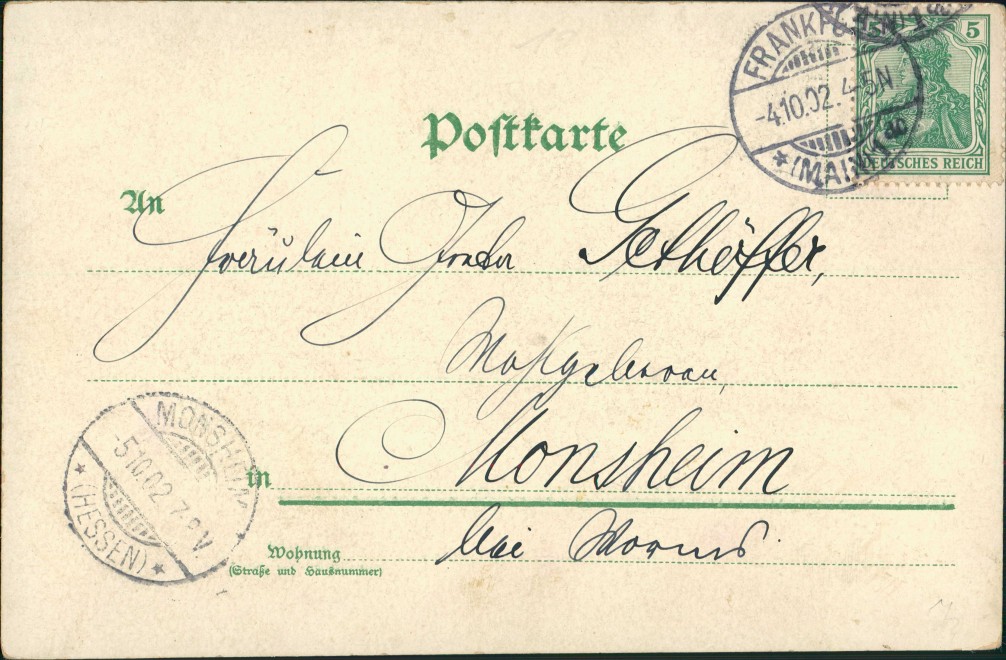 FRANKFURT
(MAIN) 1
-4.10.02. 4-5N
5 5
DEUTSCHES REICH
Postkarte
An
Fräulein
Monsheim
in
bei Worms.
Wohnung
(Straße und Hausnummer)
MONSHEIM
-5.10.02. 7-8V
* (HESSEN) *